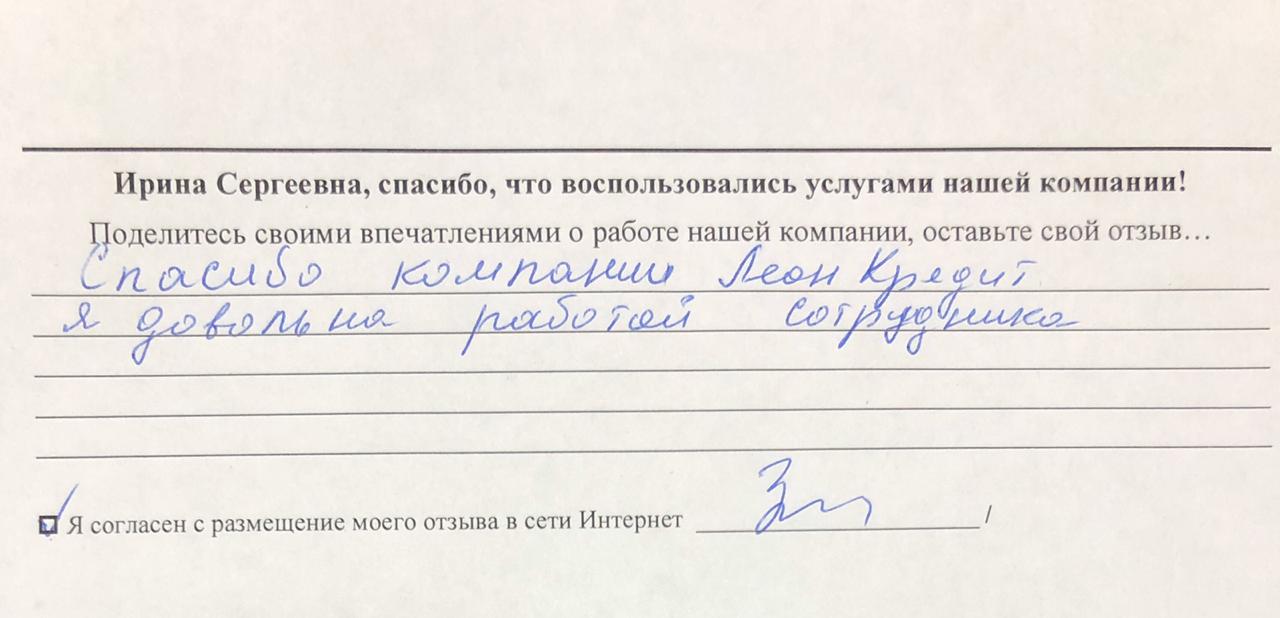 Ирина Сергеевна, спасибо, что воспользовались услугами нашей компании!
Поделитесь своими впечатлениями о работе нашей компании, оставьте свой отзыв…
Спасибо компании Леон Кредит
я довольна работой сотрудника
Я согласен с размещение моего отзыва в сети Интернет /